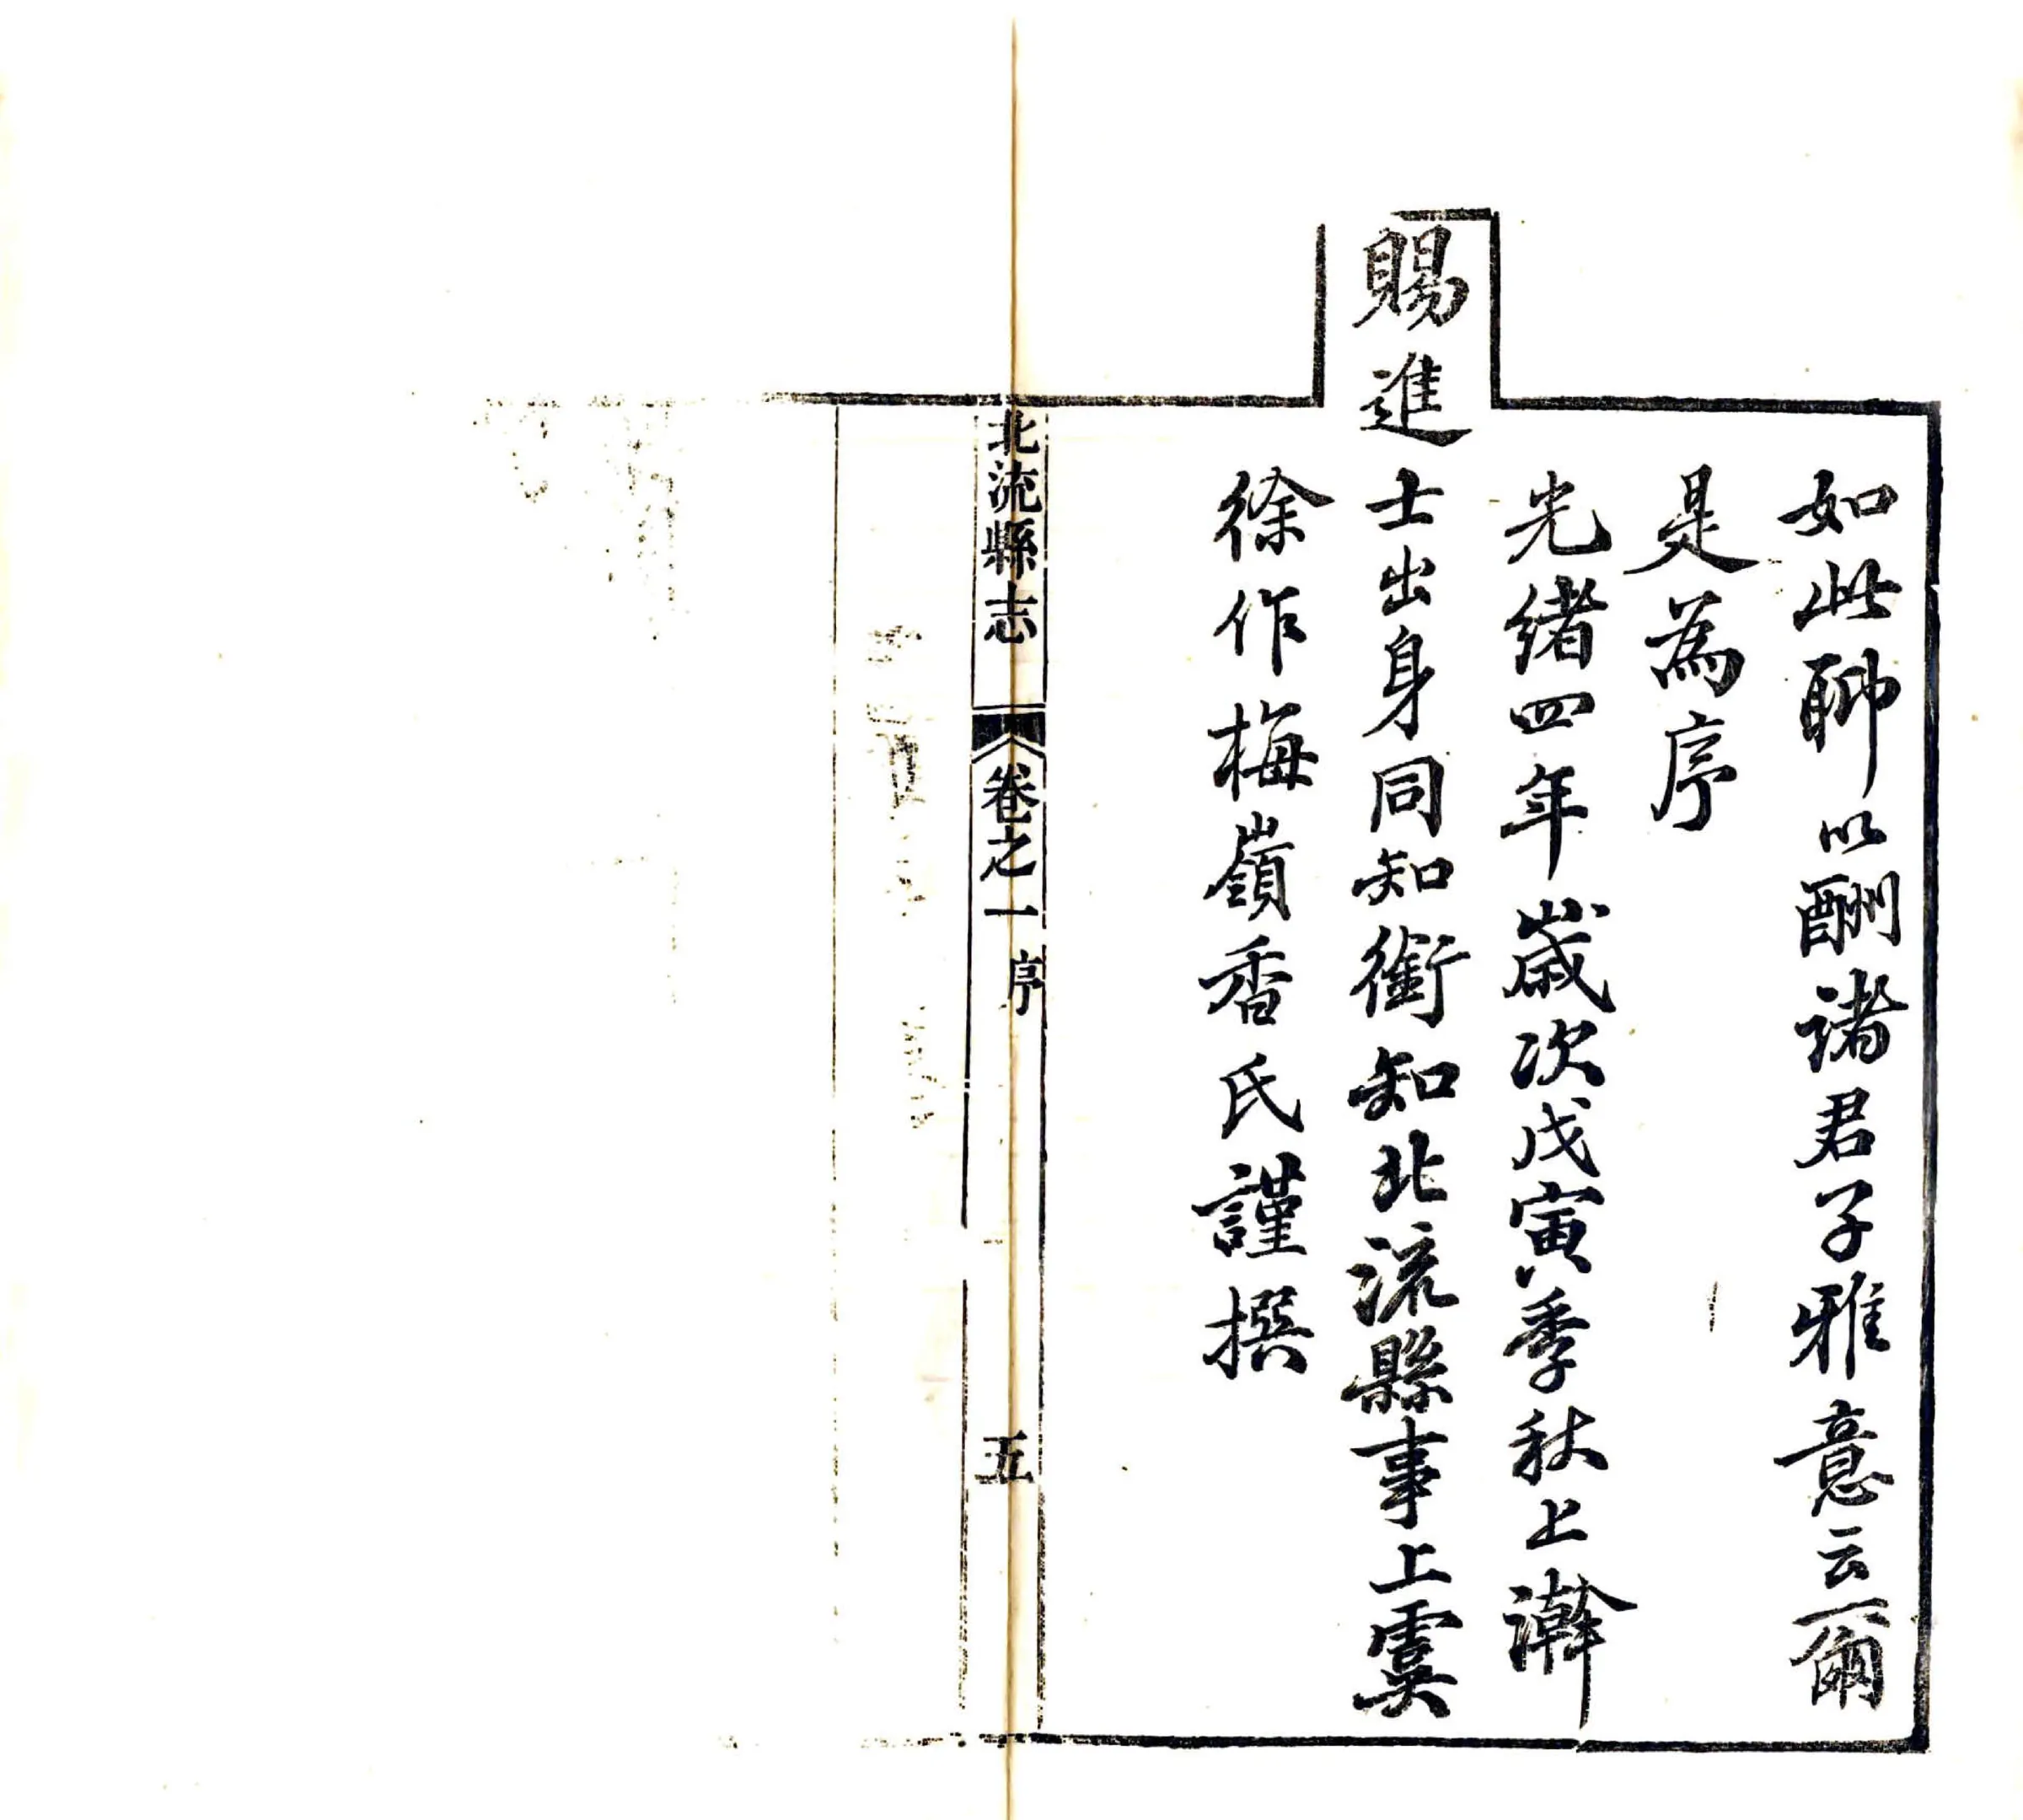 如此聊以酬諸君子雅意云爾
是為序
光緒四年歲次戊寅季秋上澣
賜進士出身同知銜知北流縣事上虞
徐作梅嶺香氏謹撰
北流縣志 卷之一 序 五